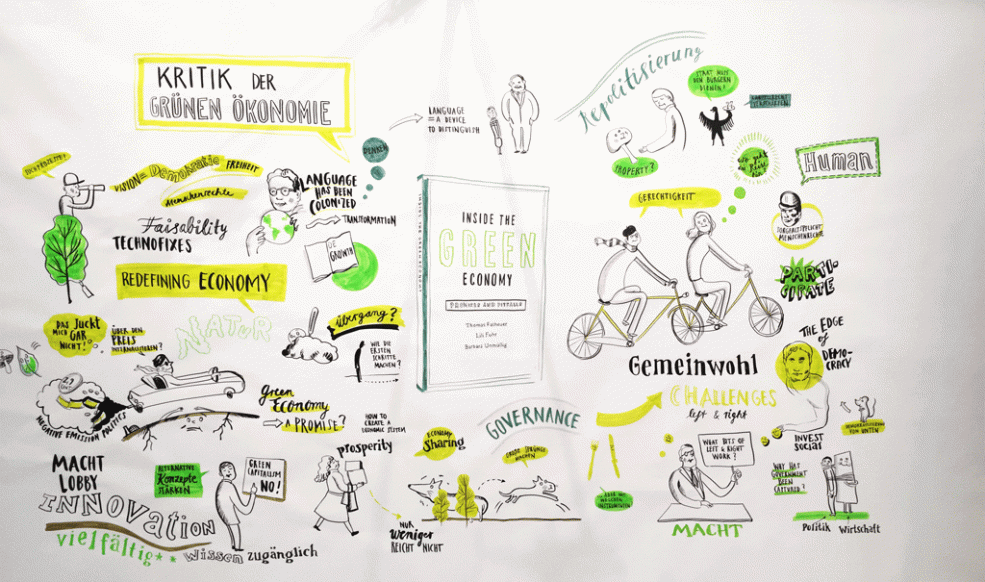 KRITIK DER
GRÜNEN ÖKONOMIE
VISION
Demokratie
FREIHEIT
Menschenrechte
Faisability
TECHNOFIXES
REDEFINING ECONOMY
DENKEN
LANGUAGE
HAS BEEN
COLONIZED
TRANSFORMATION
DE
GROWTH
LANGUAGE
= A DEVICE
TO DISTINGUISH
Repolitisierung
STAAT MUSS
DEN BÜRGERN
DIENEN!
PROPERTY?
Human
GERECHTIGKEIT
SORGFALTSPFLICHT
MENSCHENRECHTE
PARTI-
CIPATE
INSIDE THE
GREEN
ECONOMY
PROMISES AND PITFALLS
Thomas Fatheuer
Lili Fuhr
Barbara Unmüßig
DAS JUCKT
MICH
GAR
NICHT!
ÜBER DEN
PREIS
INTERNALISIEREN?
NATUR
Übergang?
WIE DIE
ERSTEN
SCHRITTE
MACHEN?
NEGATIVE EMISSION POLITICS
green
Economy
A PROMISE?
HOW TO
CREATE A
ECONOMIC SYSTEM
prosperity
ECONOMY
Sharing
GOVERNANCE
GROßE SPRÜNGE
MACHEN
Gemeinwohl
CHALLENGES
left & right
THE EDGE
OF
DEMO-
CRACY
MACHT
LOBBY
INNOVATION
vielfältig
wissen zugänglich
ALTERNATIVE
Konzepte
STÄRKEN
GREEN
CAPITALISM
NO!
NUR
Weniger
REICHT NICHT
WHAT BITS OF
LEFT & RIGHT
WORK?
MACHT
INVEST
SOCIAL
DEMOKRATISIERUNG
VON UNTEN
WHY HAS
GOVERNMENT
BEEN
CAPTURED?
Politik Wirtschaft